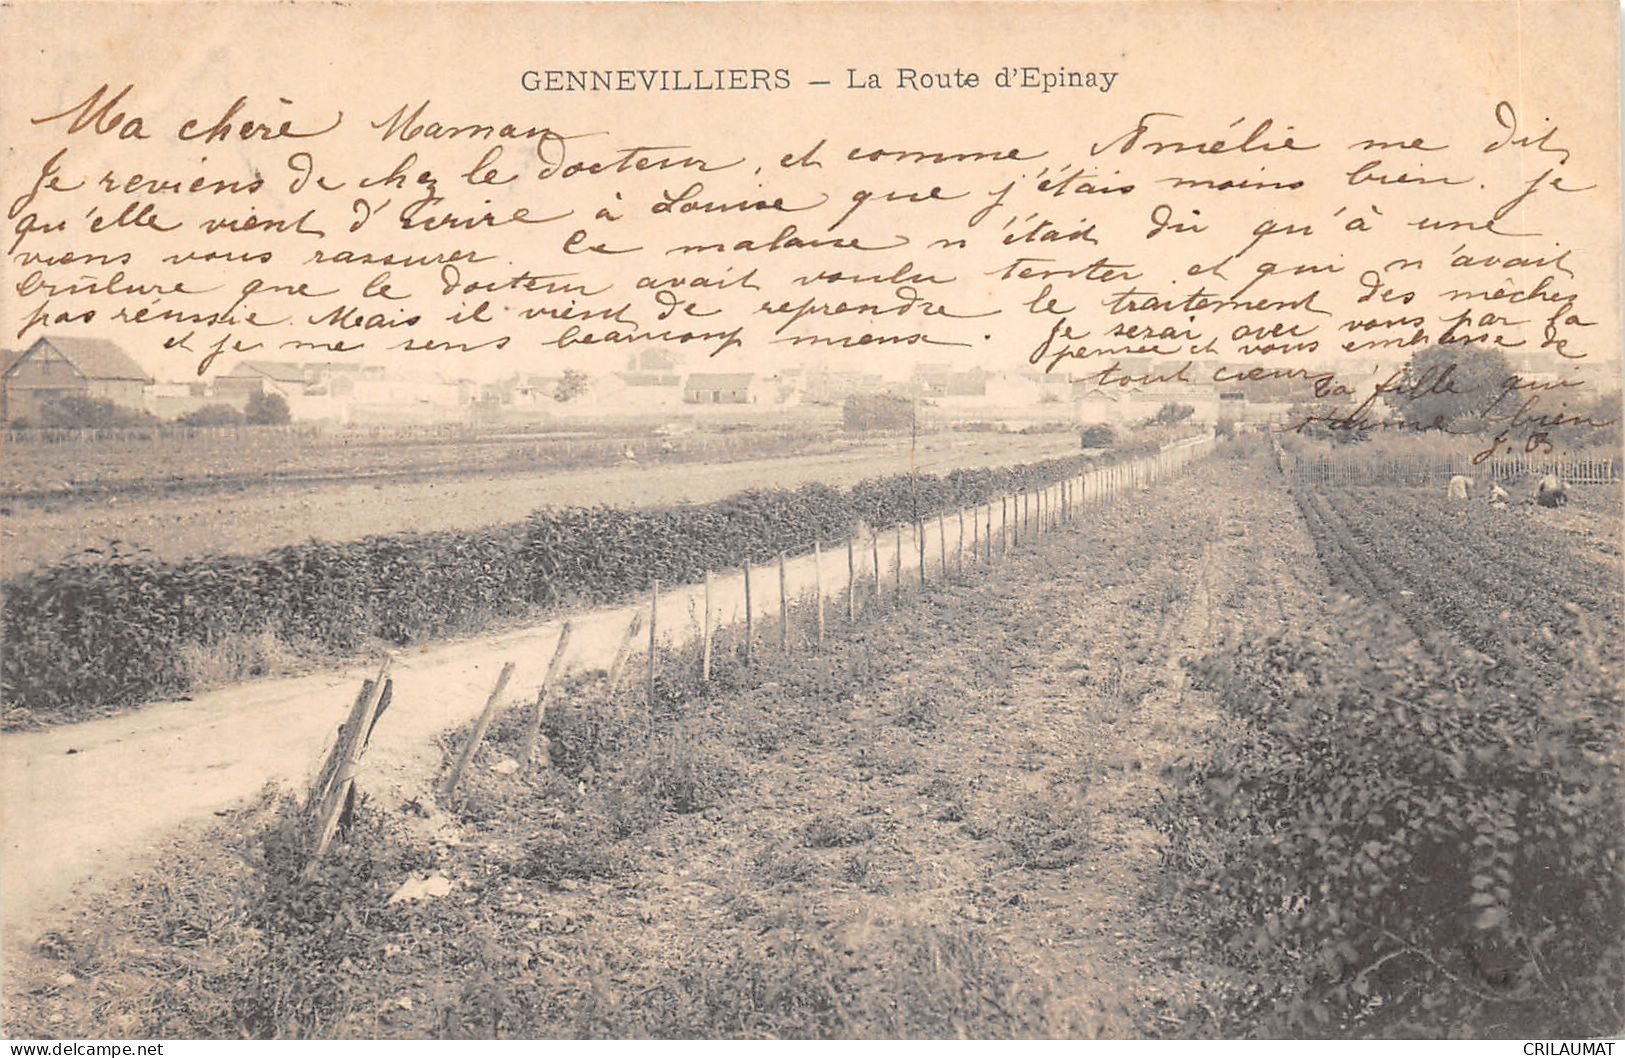 GENNEVILLIERS — La Route d'Epinay
Ma chère Maman
Je reviens de chez le docteur, et comme Amélie me dit
qu'elle vient d'écrire à Louise que j'étais moins bien. Je
viens vous rassurer. Ce malaise n'était dû qu'à une
brûlure que le docteur avait voulu tenter et qui n'avait
pas réussie. Mais il vient de reprendre le traitement des mèches
et je me sens beaucoup mieux. Je serai avec vous par la
pensée et vous embrasse de
tout cœur
Ta fille qui
t'aime bien
J. B.
delcampe.net
CRILAUMAT